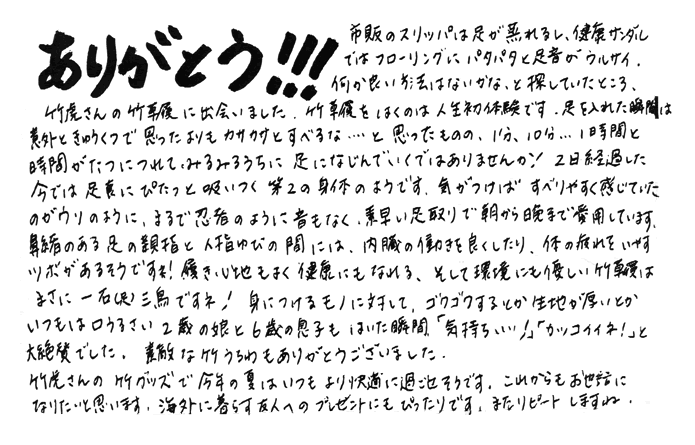 ありがとう!!!
市販のスリッパは足が蒸れるし、健康サンダル
ではフローリングにパタパタと足音がウルサイ。
何か良い方法はないかな、と探していたところ、
竹虎さんの竹草履に出会いました。竹草履をはくのは人生初体験です。足を入れた瞬間は
意外ときゅうくつで思ったよりもカサカサとすべるな…と思ったものの、1分、10分…1時間と
時間がたつにつれて、みるみるうちに足になじんでいくではありませんか! 2日経過した
今では足裏にぴたっと吸いつく第2の身体のようです。気がつけばすべりやすく感じていた
のがウソのように、まるで忍者のように音もなく、素早い足取りで朝から晩まで愛用しています。
鼻緒のある足の親指と人指ゆびの間には、内臓の働きを良くしたり、体の疲れをいやす
ツボがあるそうですネ! 履き心地もよく健康にもなれる、そして環境にも優しい竹草履は
まさに一石(足)三鳥ですネ! 身につけるモノに対して、ゴワゴワするとか生地が厚いとか
いつもは口うるさい2歳の娘と6歳の息子もはいた瞬間、「気持ちいい!」「カッコイイネ!」と
大絶賛でした。素敵な竹うちわもありがとうございました。
竹虎さんの竹グッズで今年の夏はいつもより快適に過ごせそうです。これからもお世話に
なりたいと思います。海外に暮らす友人へのプレゼントにもぴったりです。またリピートしますね。